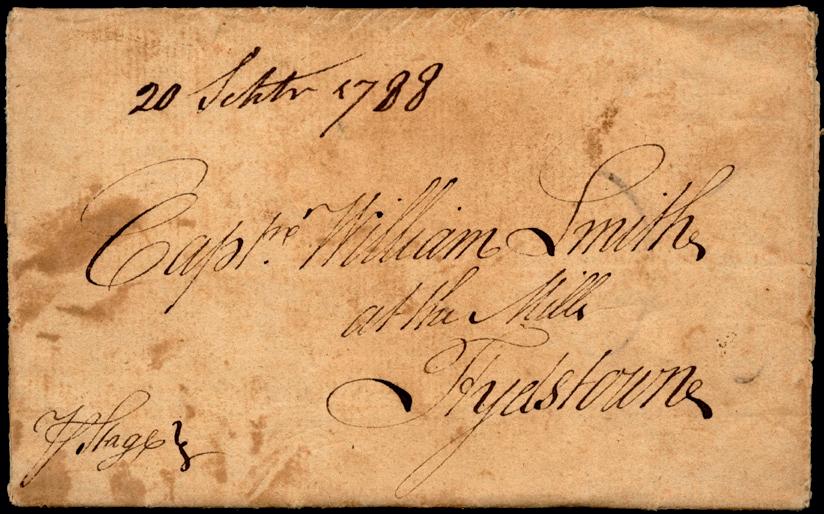 20 Sehtr 1788
Captne William Smith
at the Mills
Hydstowne
⅌ Stage